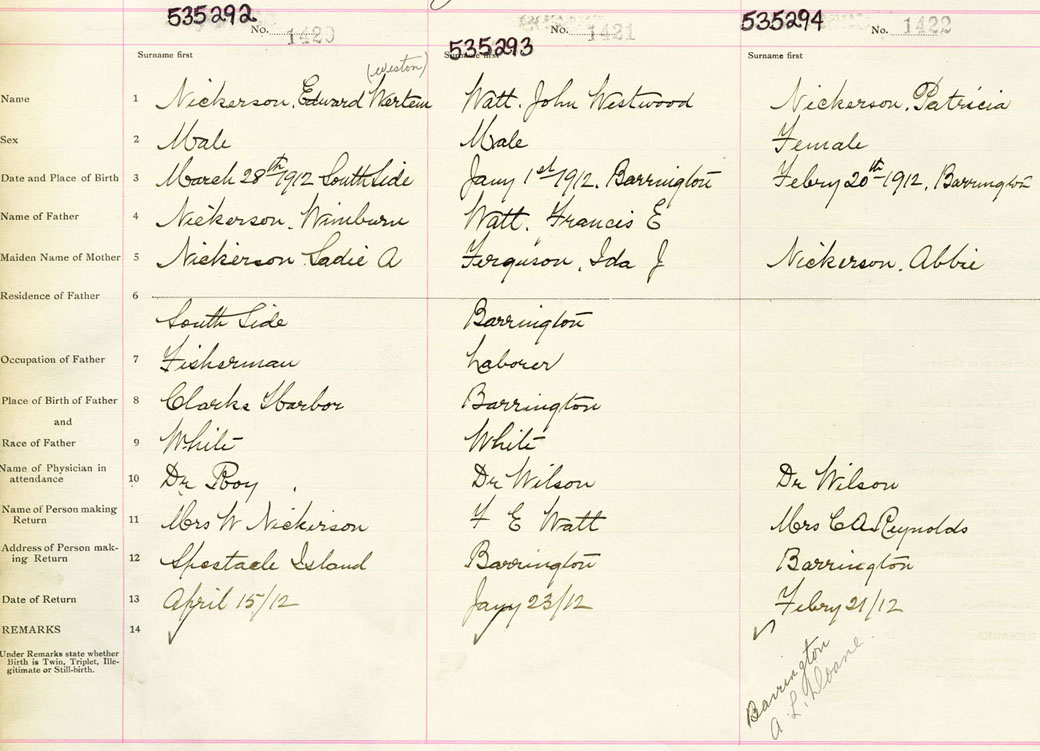 535292 535293 535294
No. 1420 No. 1421 No. 1422
Surname first Surname first Surname first
(Weston)
Name 1 Nickerson, Edward Wertem Watt, John Westwood Nickerson, Patricia
Sex 2 Male Male Female
Date and Place of Birth 3 March 28th 1912 South Side Jany 1st 1912, Barrington Febry 20th 1912, Barrington
Name of Father 4 Nickerson, Wimburn Watt, Francis E
Maiden Name of Mother 5 Nickerson Sadie A Ferguson, Ida J Nickerson, Abbie
Residence of Father 6
South Side Barrington
Occupation of Father 7 Fisherman Laborer
Place of Birth of Father 8 Clarks Harbor Barrington
and
Race of Father 9 White White
Name of Physician in
attendance 10 Dr Roy Dr Wilson Dr Wilson
Name of Person making
Return 11 Mrs W Nickerson F E Watt Mrs C A Reynolds
Address of Person mak-
ing Return 12 Spectacle Island Barrington Barrington
Date of Return 13 April 15/12 Jany 23/12 Febry 21/12
REMARKS 14
Under Remarks state whether
Birth is Twin, Triplet, Ille-
gitimate or Still-birth.
Barrington
A. L. Doane.